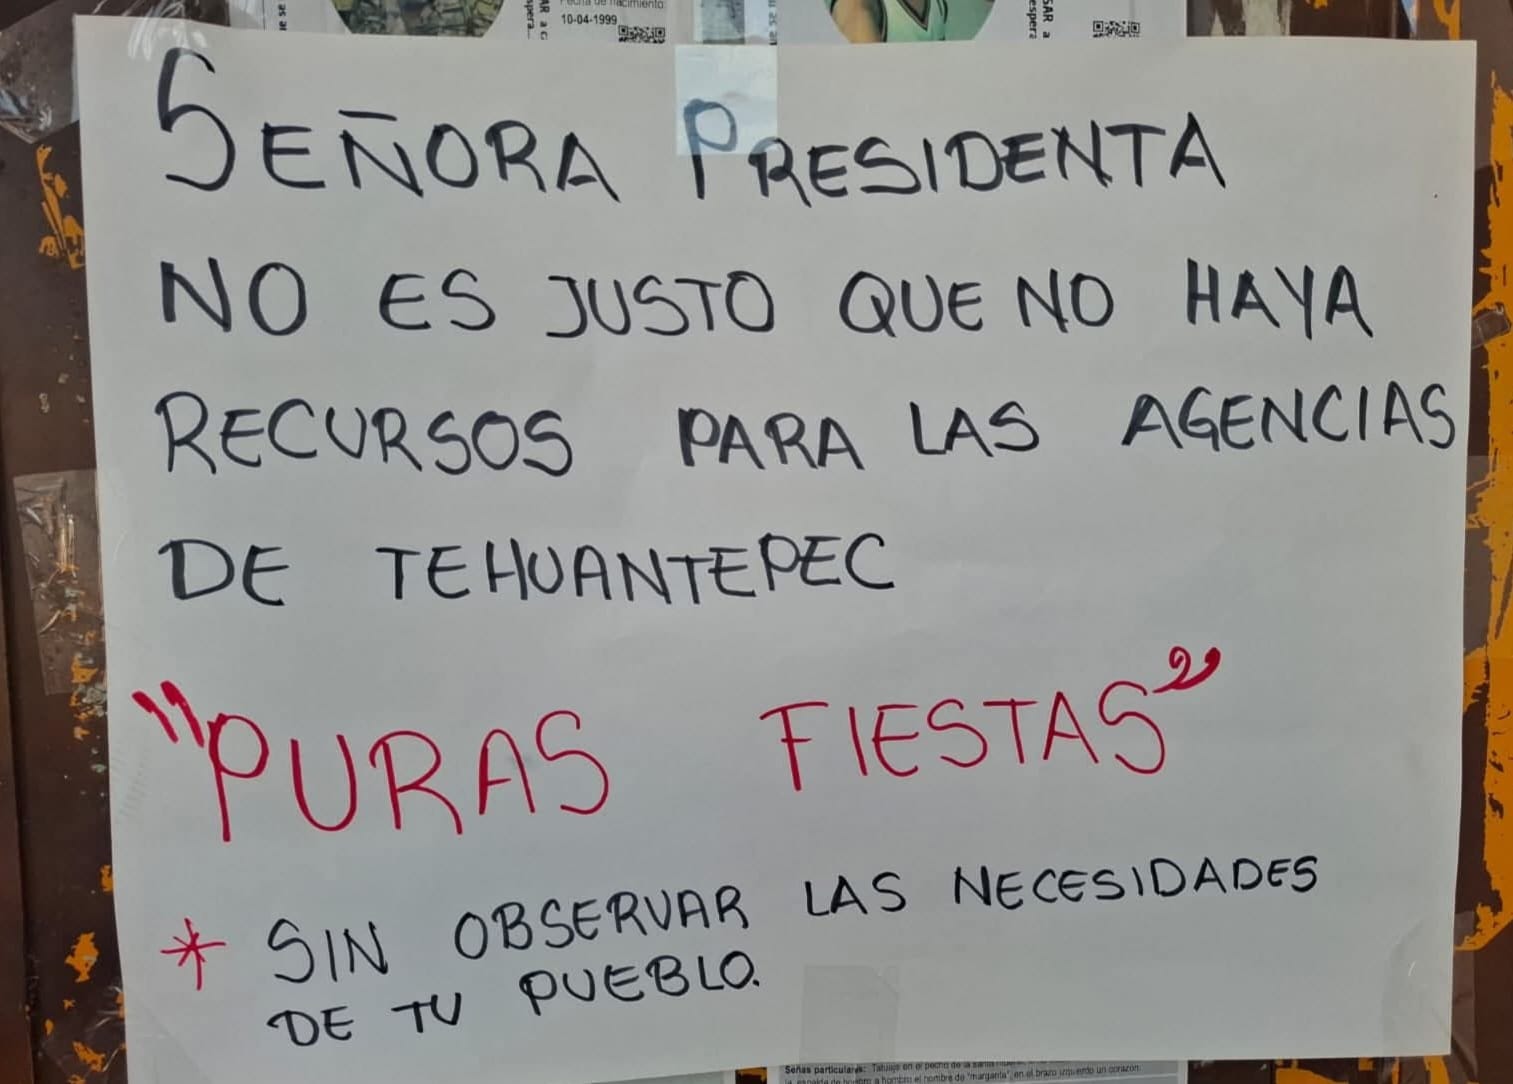 10-04-1999
SEÑORA PRESIDENTA
NO ES JUSTO QUE NO HAYA
RECURSOS PARA LAS AGENCIAS
DE TEHUANTEPEC
"PURAS FIESTAS"
* SIN OBSERVAR LAS NECESIDADES
DE TU PUEBLO.
Señas particulares: Tatuaje en el pecho de la santa
a hombro el nombre de "margarita", en el brazo izquierdo un corazon